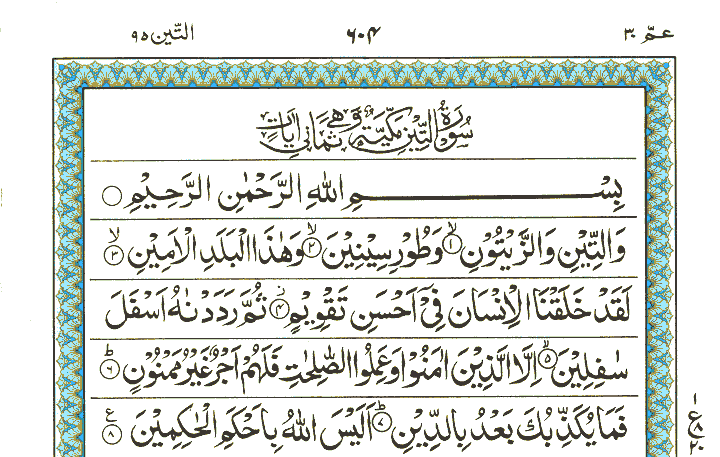 عمّ ٣٠ ٦٠٤ التّين ٩٥
سُوْرَةُ التِّيْنِ مَكِّيَّةٌ وَّهِيَ ثَمَانِيْ اٰيَاتٍ
بِسْمِ اللّٰهِ الرَّحْمٰنِ الرَّحِيْمِ ○
وَالتِّيْنِ وَالزَّيْتُوْنِ ۙ﴿١﴾ وَطُوْرِ سِيْنِيْنَ ۙ﴿٢﴾ وَهٰذَا الْبَلَدِ الْاَمِيْنِ ۙ﴿٣﴾
لَقَدْ خَلَقْنَا الْاِنْسَانَ فِيْۤ اَحْسَنِ تَقْوِيْمٍ ۫﴿٤﴾ ثُمَّ رَدَدْنٰهُ اَسْفَلَ
سٰفِلِيْنَ ۙ﴿٥﴾ اِلَّا الَّذِيْنَ اٰمَنُوْا وَعَمِلُوا الصّٰلِحٰتِ فَلَهُمْ اَجْرٌ غَيْرُ مَمْنُوْنٍ ؕ﴿٦﴾
فَمَا يُكَذِّبُكَ بَعْدُ بِالدِّيْنِ ؕ﴿٧﴾ اَلَيْسَ اللّٰهُ بِاَحْكَمِ الْحٰكِمِيْنَ ﴿٨﴾ ع
١
ع
٨
٢٠